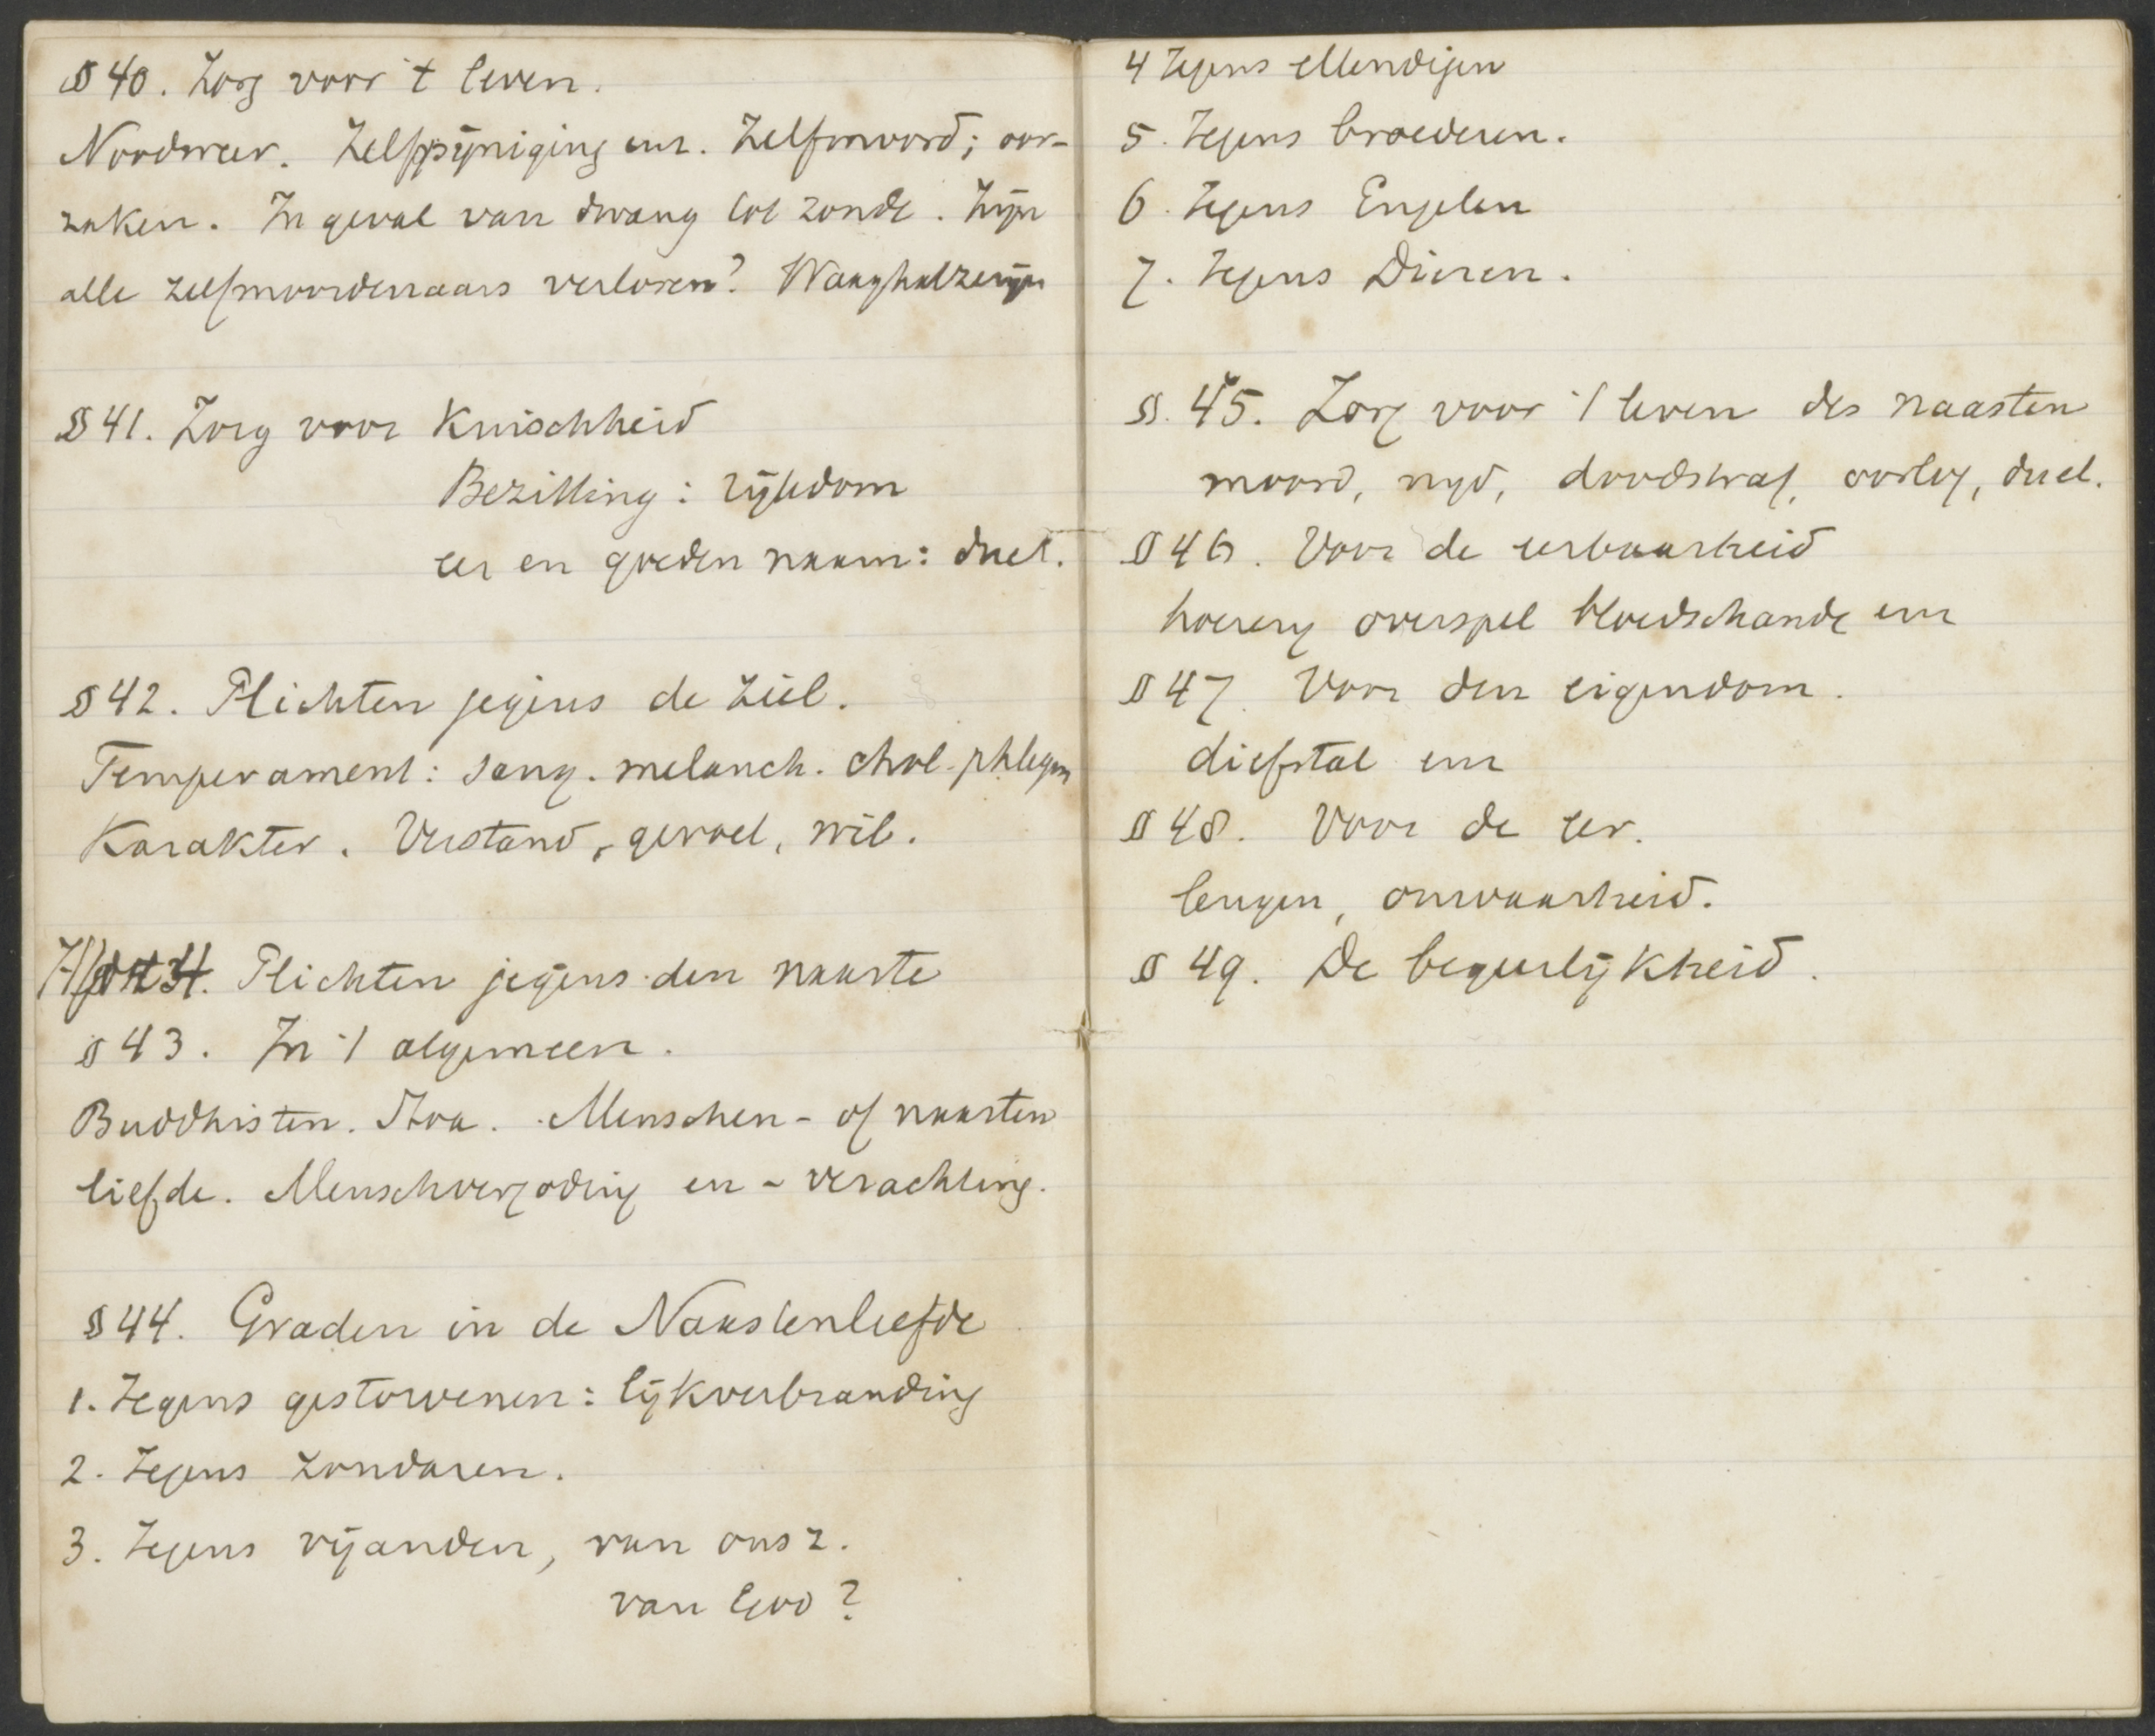 § 40. Zorg voor 't leven.
Noodweer. Zelfpijniging enz. Zelfmoord; oor-
zaken. In geval van dwang tot zonde. Zijn
alle zelfmoordenaars verloren? Waaghalzerijen
§ 41. Zorg voor Kuischheid
Bezitting: rijkdom
eer en goeden naam: duel.
§ 42. Plichten jegens de ziel.
Temperament: sang. melanch. chol. phlegm
Karakter. Verstand, gevoel, wil.
Plichten jegens den naaste
§ 43. In 't algemeen.
Buddhisten. Stoa. Menschen- of naasten
liefde. Menschvergoding en -verachting.
§ 44. Graden in de Naastenliefde
1. Jegens gestorvenen: lijkverbranding
2. Jegens zondaren.
3. Jegens vijanden, van ons z.
van God?
4 Jegens ellendigen
5. Jegens broederen.
6. Jegens Engelen
7. Jegens Dieren.
§. 45. Zorg voor 't leven des naasten
moord, nijd, doodstraf, oorlog, duel.
§ 46. Voor de eerbaarheid
hoererij overspel bloedschande enz
§ 47. Voor den eigendom.
diefstal enz
§ 48. Voor de eer.
leugen, onwaarheid.
§ 49. De begeerlijkheid.